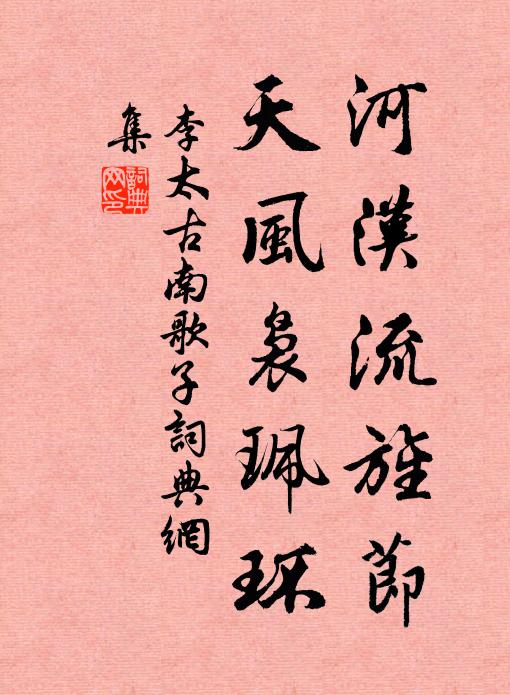 河漢流旌節
天風裊珮环
李太古南歌子詞典網
集
詞典
网印